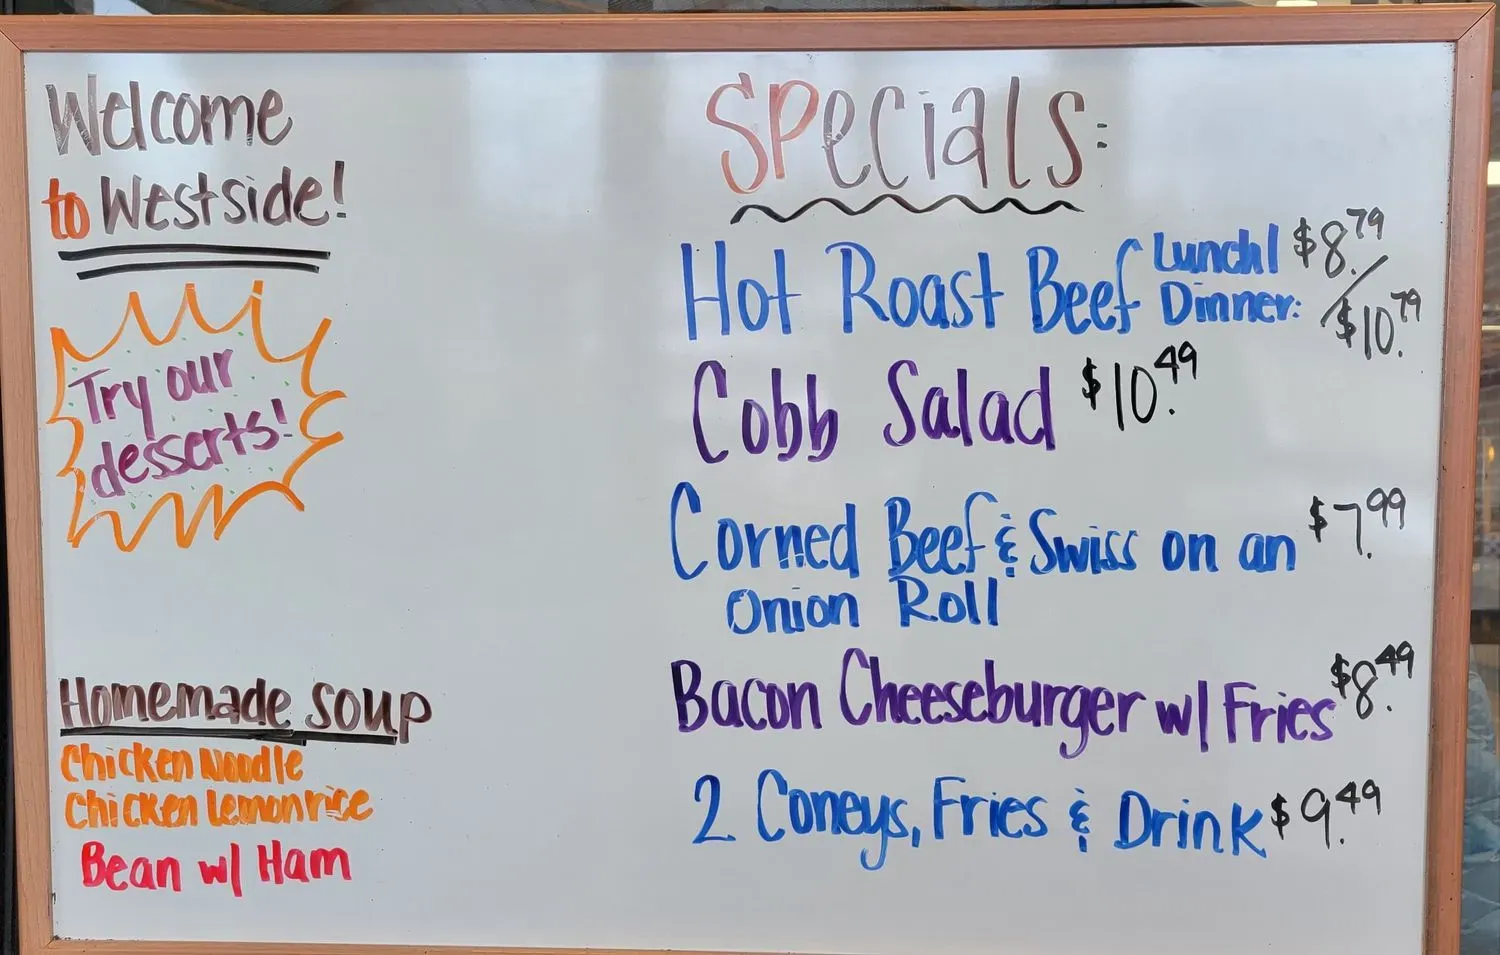 Welcome
to Westside!
Try our
desserts!
Homemade Soup
Chicken Noodle
Chicken Lemon rice
Bean w/ Ham
Specials:
Hot Roast Beef Lunch/ Dinner: $8.79/$10.79
Cobb Salad $10.49
Corned Beef & Swiss on an $7.99
Onion Roll
Bacon Cheeseburger w/ Fries $8.49
2 Coneys, Fries & Drink $9.49